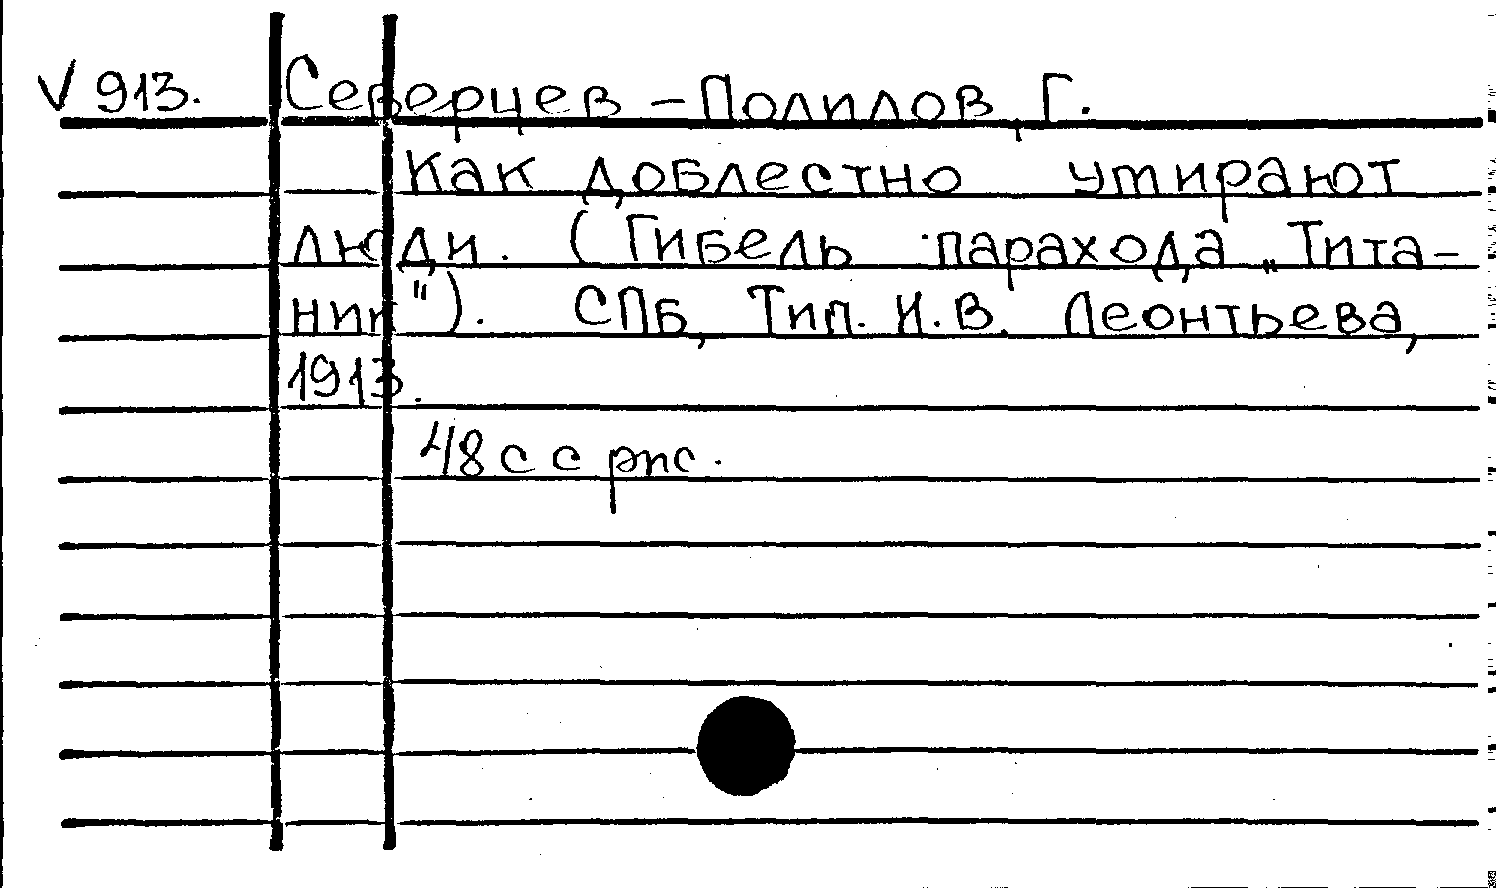 V 913. Северцев-Полилов, Г.
Как доблестно умирают
люди. (Гибель парахода „Тита-
ник"). СПб, Тип. И.В. Леонтьева,
1913.
48 с с рис.